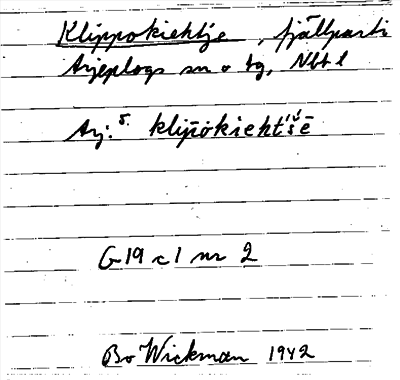 Klippokiehtje, fjällparti
Arjeplogs sn o tg, Nbt l
Arj: 5. klip̄okieht́š́ē
G19 c1 nr 2
Bo Wickman 1942